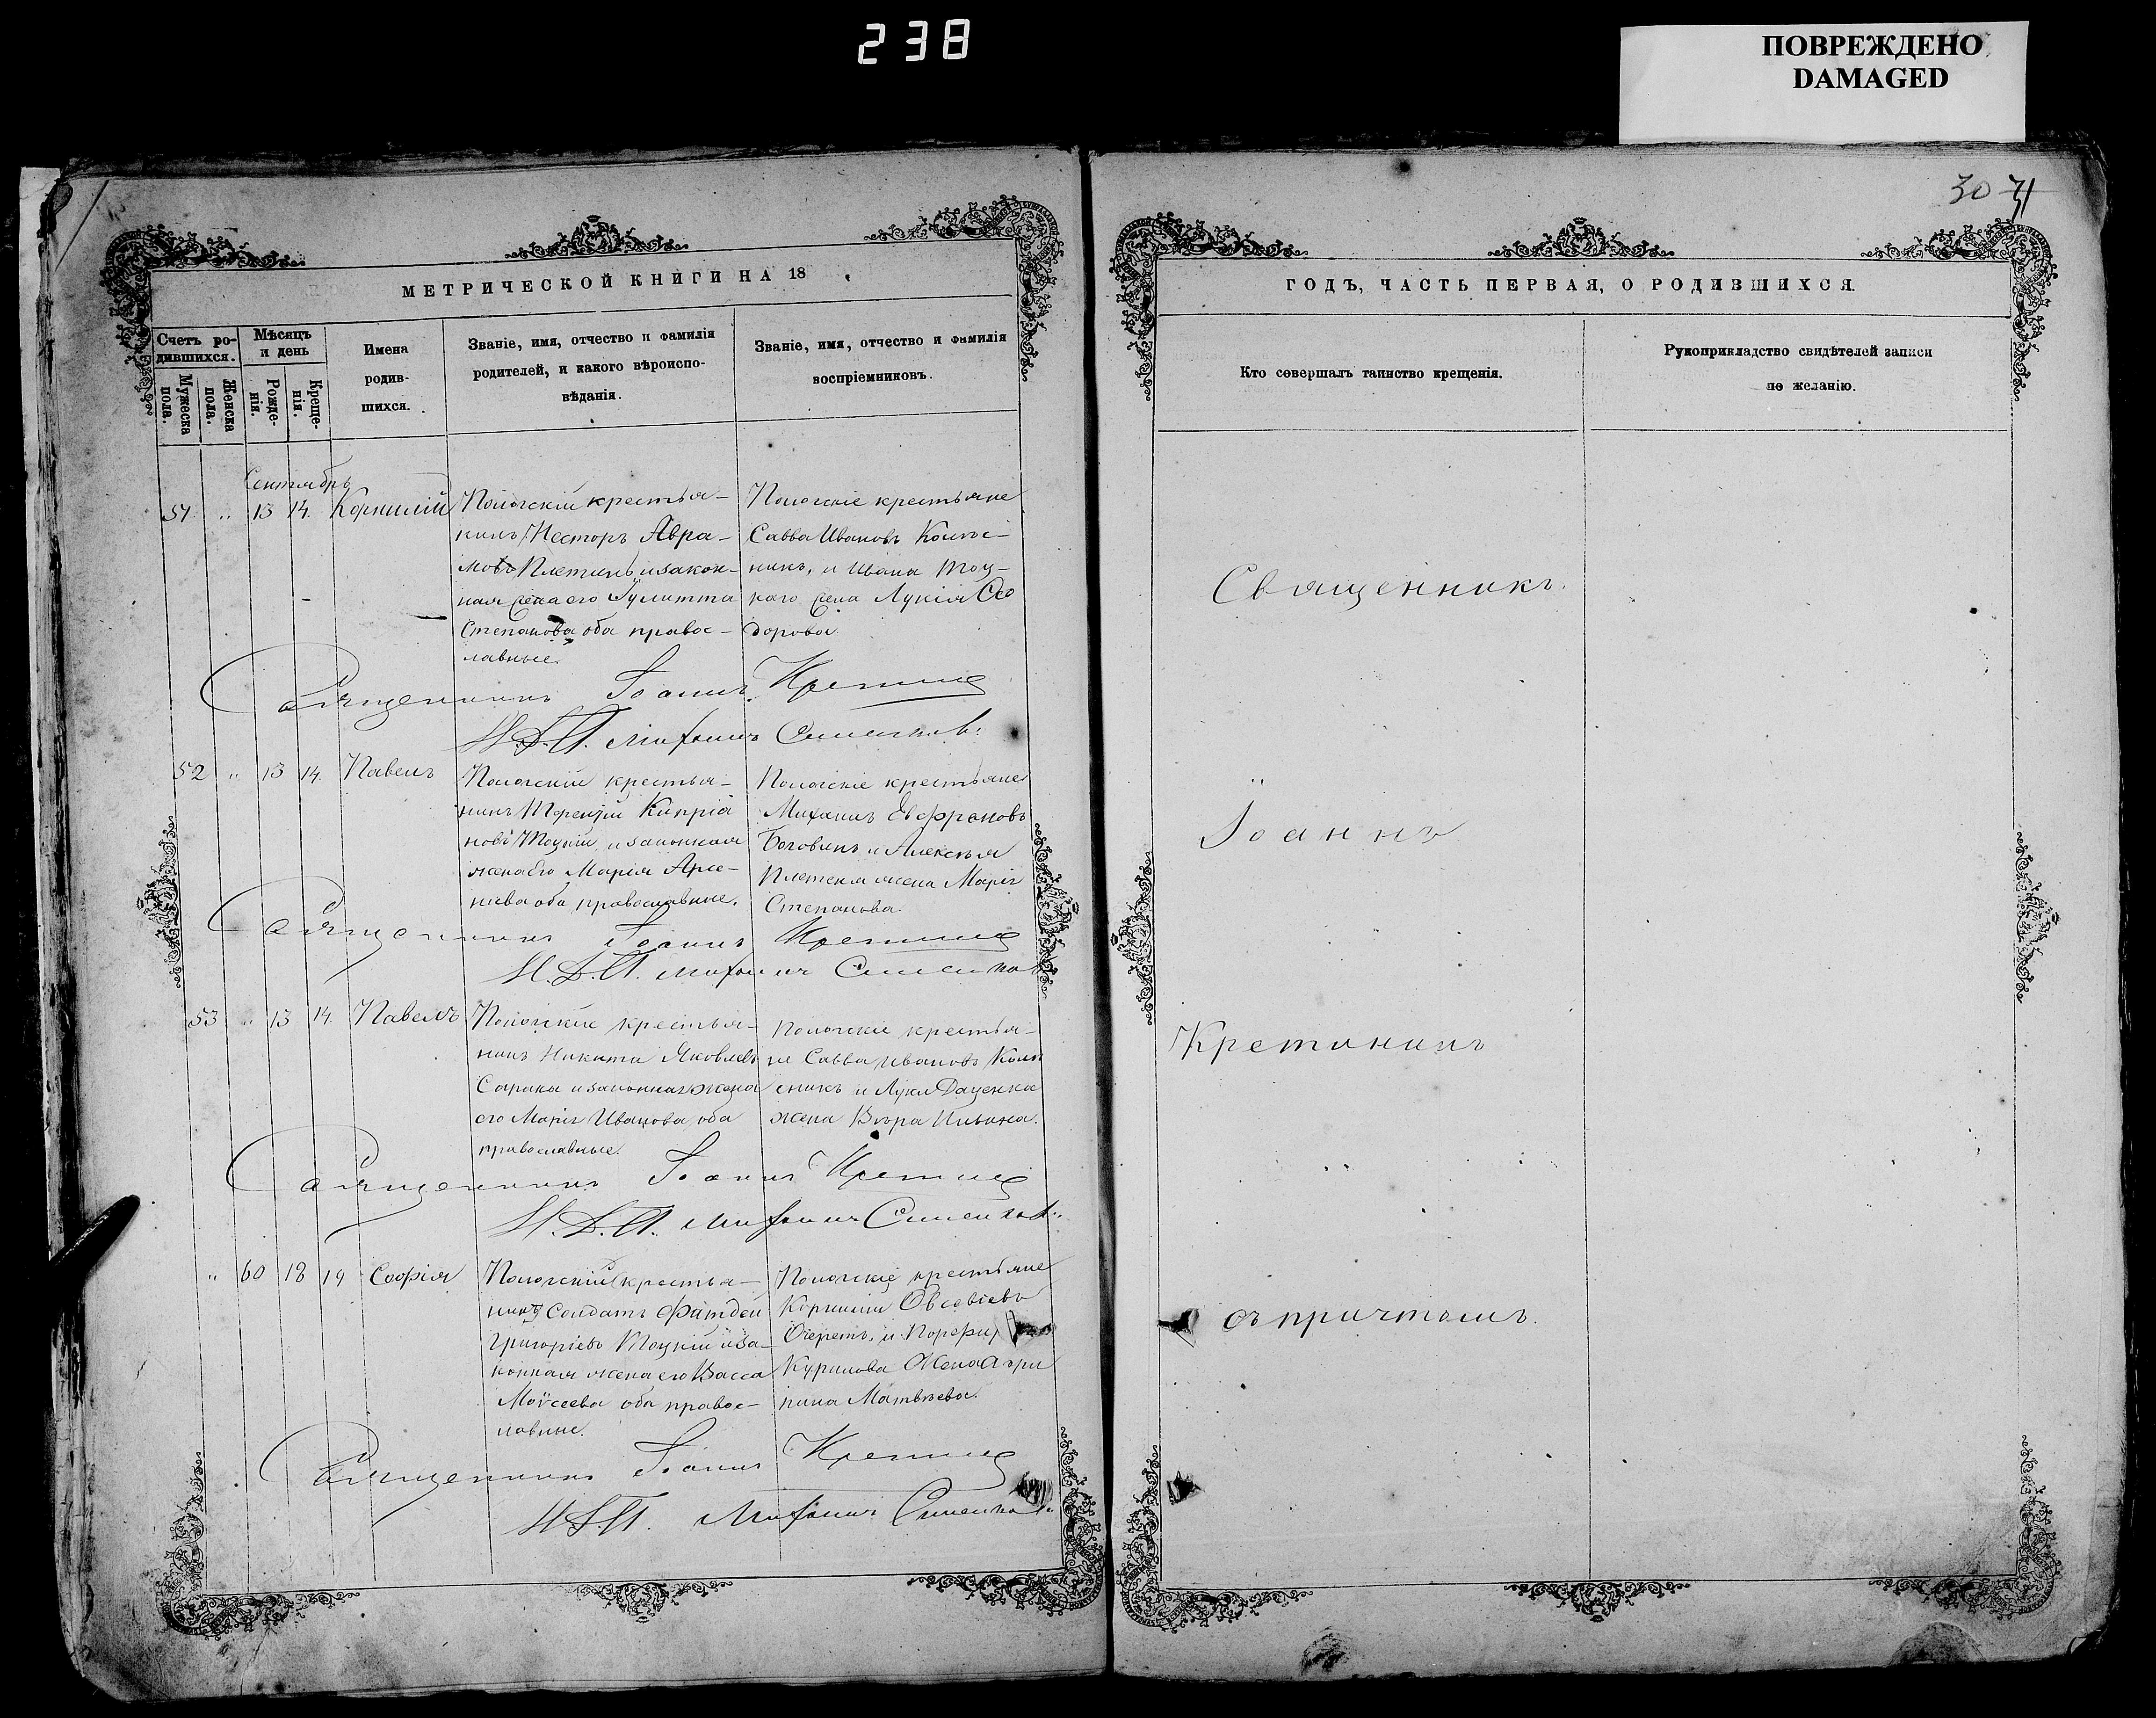 238
ПОВРЕЖДЕНО
DAMAGED
30 31
МЕТРИЧЕСКОЙ КНИГИ НА 18
Счетъ родившихся.
Мужеска пола.
Женска пола.
Мѣсяцъ и день
Рожденія.
Крещенія.
Имена
родив-
шихся.
Званіе, имя, отчество и фамилія
родителей, и какого вѣроиспо-
вѣданія.
Званіе, имя, отчество и фамилія
воспріемниковъ.
Сентябрь
51 " 13 14. Корнилій
Пологскій крестья-
нинъ Несторъ Авра-
мовъ Плетинь и закон-
ная жена его Іулитта
Степанова оба правос-
лавные.
Пологскіе крестьяне
Савва Ивановъ
и Ивана Тоц-
каго жена Лукія Фео
дорова.
Священникъ Іоаннъ
И.Д.П. Михаилъ
52 " 13 14. Павелъ
Пологскій крестья-
нинъ Терентій Кипріа
новъ Тоцкій и законная
жена его Марія Арсе-
ньева оба православные.
Пологскіе крестьяне
Михаилъ
и Алексѣя
жена Марія
Степанова.
Священникъ Іоаннъ
И.Д.П. Михаилъ
53 " 13 14. Павелъ
Пологскій крестья-
нинъ Никита Яковлевъ
и законная жена
его Марія Иванова оба
православные.
Пологскіе крестья-
не Савва Ивановъ
и Луки Даценка
жена Вѣра Ильина.
Священникъ Іоаннъ
И.Д.П. Михаилъ
" 60 18 19 Софія
Пологскій крестья-
нинъ Солдатъ
Григоріевъ Тоцкій и за-
конная жена его Васса
Моѵсеева оба правос-
лавные.
Пологскіе крестьяне
Корнилій
и
Курилова жена Агри
пина Матвѣева.
Священникъ Іоаннъ
И.Д.П. Михаилъ
ГОДЪ, ЧАСТЬ ПЕРВАЯ, О РОДИВШИХСЯ.
Кто совершалъ таинство крещенія.
Рукоприкладство свидѣтелей записи
по желанію.
Священникъ
Іоаннъ
Кретининъ
съ причтомъ.